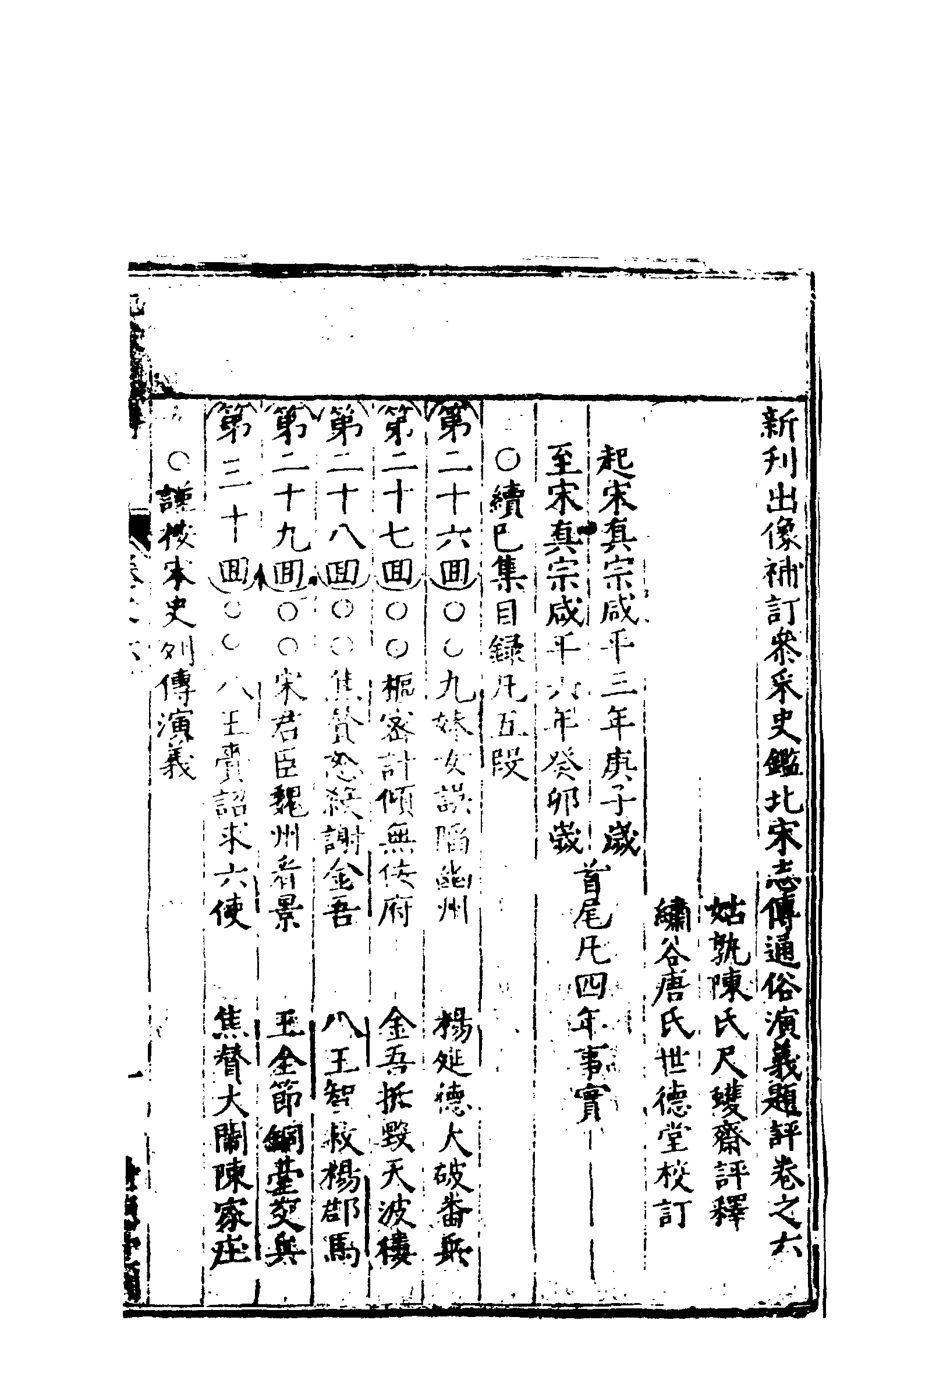 新刊出像補訂叅采史鑑北宋志傳通俗演義題評卷之六
姑孰陳氏尺蠖齋評釋
繡谷唐氏世德堂校訂
起宋真宗咸平三年庚子歲
至宋真宗咸平六年癸卯歲
首尾凡四年事實
○續巳集目録凡五段
第二十六囬○○九妹女誤陷幽州 楊延德大破番兵
第二十七囬○○樞密計傾無佞府 金吾拆毀天波樓
第二十八囬○○焦贊怒殺謝金吾 八王智救楊郡馬
第二十九囬○○宋君臣魏州看景 王全節銅臺交兵
第三十囬○○八王賫詔求六使 焦贊大鬧陳家庄
○謹按宋史列傳演義